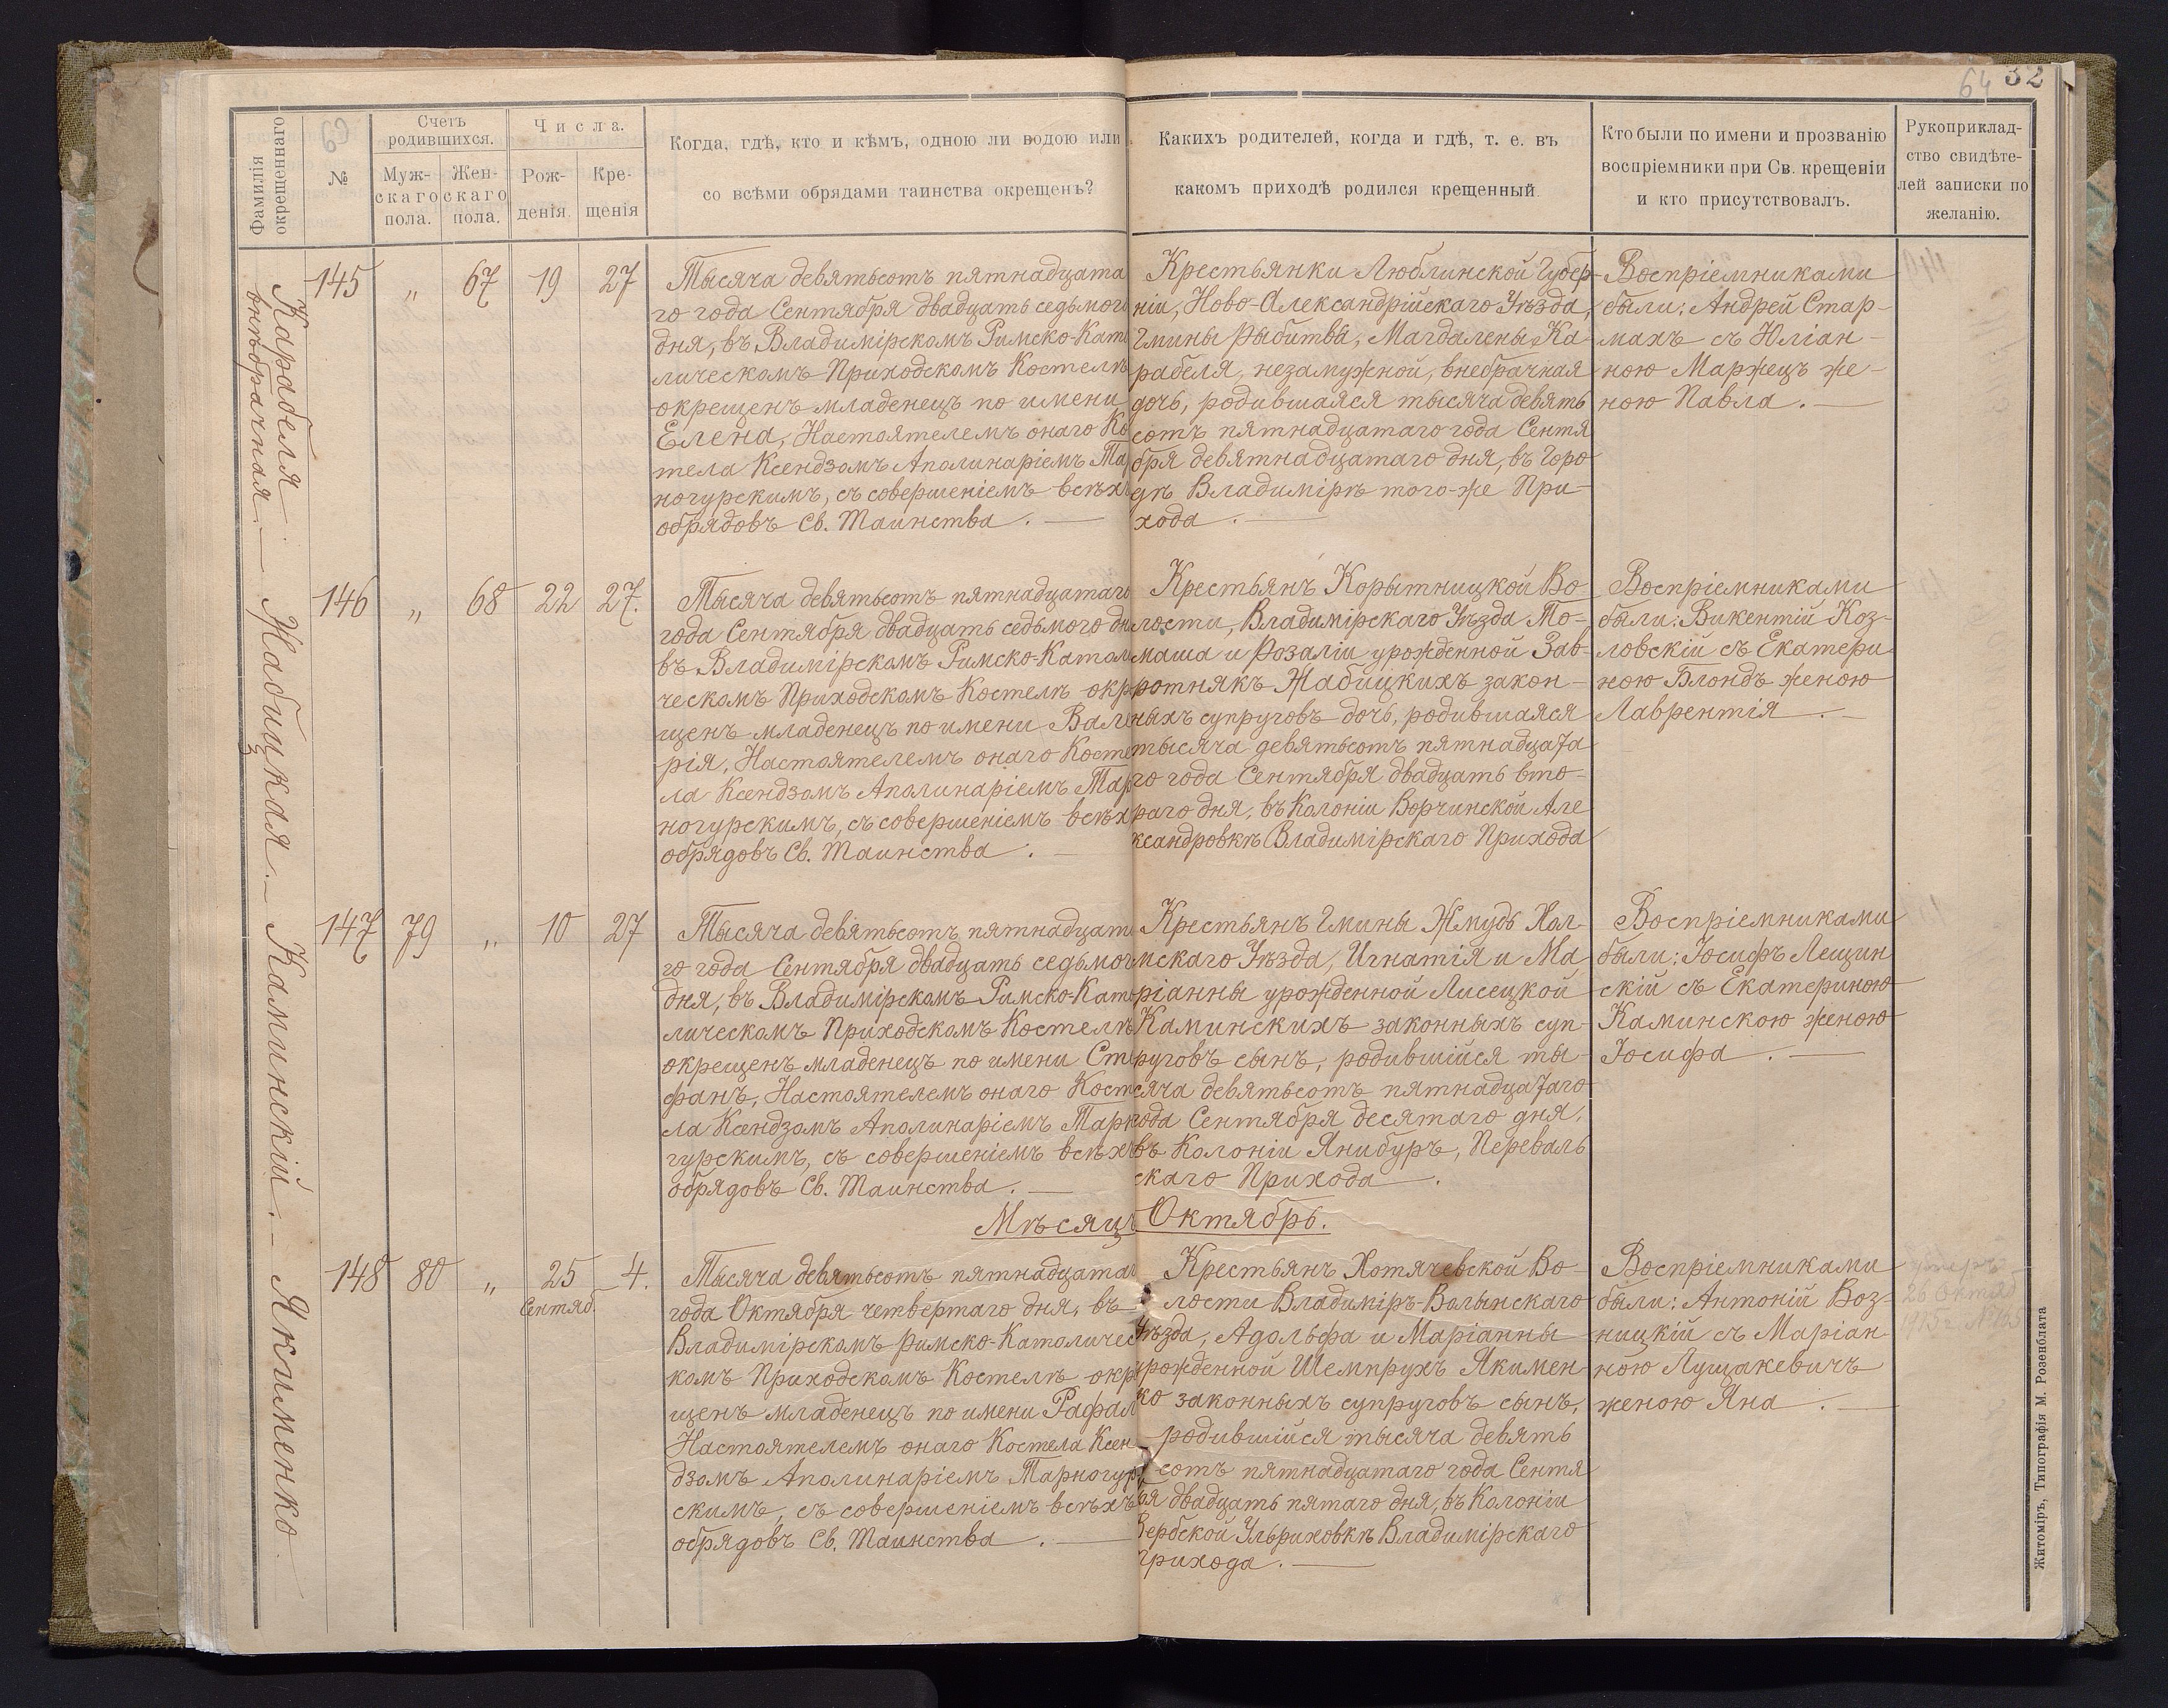 64 32
Фамилія
окрещеннаго
63
№
Счетъ
родившихся.
Муж-
скаго
пола.
Жен-
скаго
пола.
Числа.
Рож-
денія
Кре-
щенія
Когда, гдѣ, кто и кѣмъ, одною ли водою или
со всѣми обрядами таинства окрещенъ?
Какихъ родителей, когда и гдѣ, т. е. въ
какомъ приходѣ родился крещенный
Кто были по имени и прозванію
воспріемники при Св. крещеніи
и кто присутствовалъ.
Рукоприклад-
ство свидѣте-
лей записки по
желанію.
Карабеля
внѣбрачная.
145 „ 67 19 27
Тысяча девятьсотъ пятнадцата
го года Сентября двадцать седьмого
дня, въ Владимірскомъ Римско-Като
лическомъ Приходскомъ Костелѣ
окрещенъ младенецъ по имени
Елена, Настоятелемъ онаго Ко
тела Ксендзомъ Аполинаріемъ Та
ногурскимъ, съ совершеніемъ всѣхъ
обрядовъ Св. Таинства.
Крестьянки Люблинской Губер-
ніи, Ново-Александрійскаго Уѣзда,
Гмины Рыбитвы, Магдалены Ка-
рабеля, незамужной, внебрачная
дочь, родившаяся тысяча девять
сотъ пятнадцатаго года Сентя
бря девятнадцатаго дня, въ Горо
дѣ Владимірѣ того-же При-
хода.
Воспріемниками
были: Андрей Стар-
махъ съ Юліан-
ною Маржецъ же-
ною Павла.
Жабицкая.
146 „ 68 22 27.
Тысяча девятьсотъ пятнадцатаго
года Сентября двадцать седьмого дн
въ Владимірскомъ Римско-Катол
ческомъ Приходскомъ Костелѣ окр
щенъ младенецъ по имени Вале
рія, Настоятелемъ онаго Косте
ла Ксендзомъ Аполинаріемъ Тар
ногурскимъ, съ совершеніемъ всѣх
обрядовъ Св. Таинства.
Крестьянъ Корытницкой Во-
лости, Владимірскаго Уѣзда То-
маша и Розаліи урожденной Зав-
ротнякъ Жабицкихъ закон-
ныхъ супруговъ дочь, родившаяся
тысяча девятьсотъ пятнадцата
го года Сентября двадцать вто-
раго дня, въ Колоніи Ворчинской Але
ксандровкѣ Владимірскаго Прихода
Воспріемниками
были: Викентій Коз-
ловскій съ Екатери
ною Блондъ женою
Лаврентія.
Каминскій.
147 79 „ 10 27
Тысяча девятьсотъ пятнадцат
го года Сентября двадцать седьмог
дня, въ Владимірскомъ Римско-Като
лическомъ Приходскомъ Костелѣ
окрещенъ младенецъ по имени Сте
фанъ, Настоятелемъ онаго Косте
ла Ксендзомъ Аполинаріемъ Тарн
гурскимъ, съ совершеніемъ всѣхъ
обрядовъ Св. Таинства.
Крестьянъ Гмины Жмудь Хол-
мскаго Уѣзда, Игнатія и Ма
ріанны урожденной Лисецкой
Каминскихъ законныхъ суп-
руговъ сынъ, родившійся ты-
сяча девятьсотъ пятнадцатаго
года Сентября десятаго дня,
въ Колоніи Янибуръ, Переваль
скаго Прихода.
Воспріемниками
были: Іосифъ Лещин
скій съ Екатериною
Каминскою женою
Іосифа.
Мѣсяцъ Октябрь.
Якименко
148 80 „ 25 4.
Сентяб.
Тысяча девятьсотъ пятнадцатаг
года Октября четвертаго дня, въ
Владимірскомъ Римско-Католичес
комъ Приходскомъ Костелѣ окр
щенъ младенецъ по имени Рафал
Настоятелемъ онаго Костела Ксен
дзомъ Аполинаріемъ Тарногур
скимъ, съ совершеніемъ всѣхъ
обрядовъ Св. Таинства.
Крестьянъ Хотячевской Во-
лости Владиміръ-Волынскаго
Уѣзда, Адольфа и Маріанны
урожденной Шемпрухъ Якимен
ко законныхъ супруговъ сынъ,
родившійся тысяча девять
сотъ пятнадцатаго года Сентя
бя двадцать пятаго дня, въ Колоніи
Вербской Ульриховкѣ Владимірскаго
Прихода.
Воспріемниками
были: Антоній Воз-
ницкій съ Маріан-
ною Лущакевичъ
женою Яна.
умеръ
26 Октяб
1915 г №165
Житоміръ, Типографія М. Розенблата